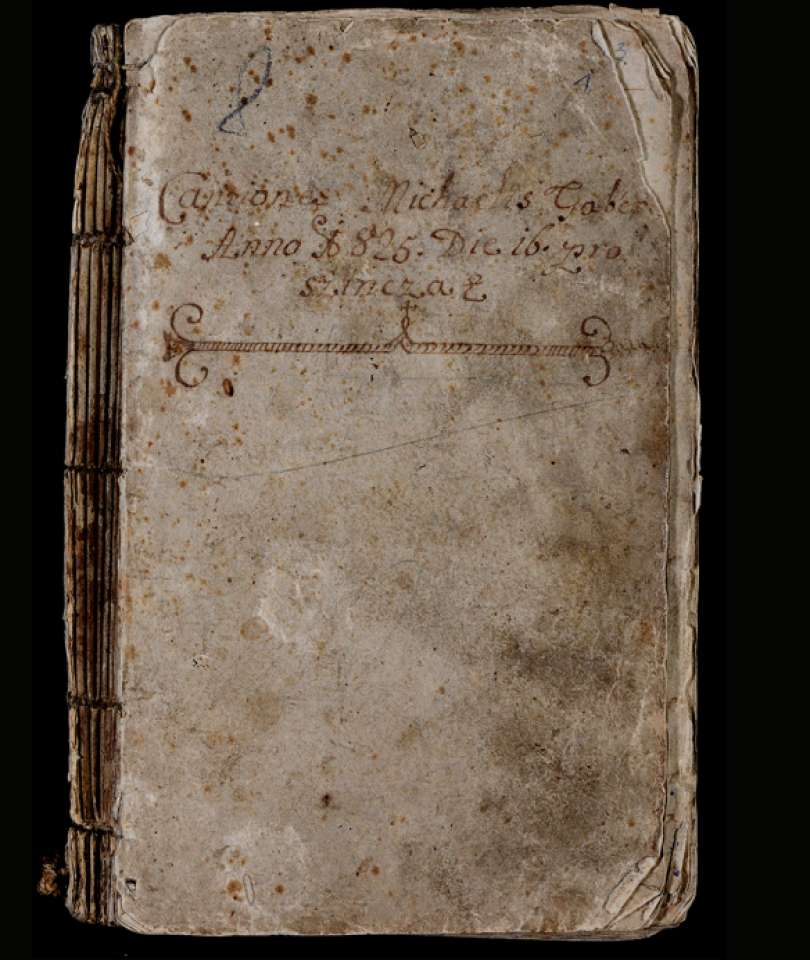 8
3
1
Canciones Michaelis Gaber
Anno 1825. Die 16. pro
szincza